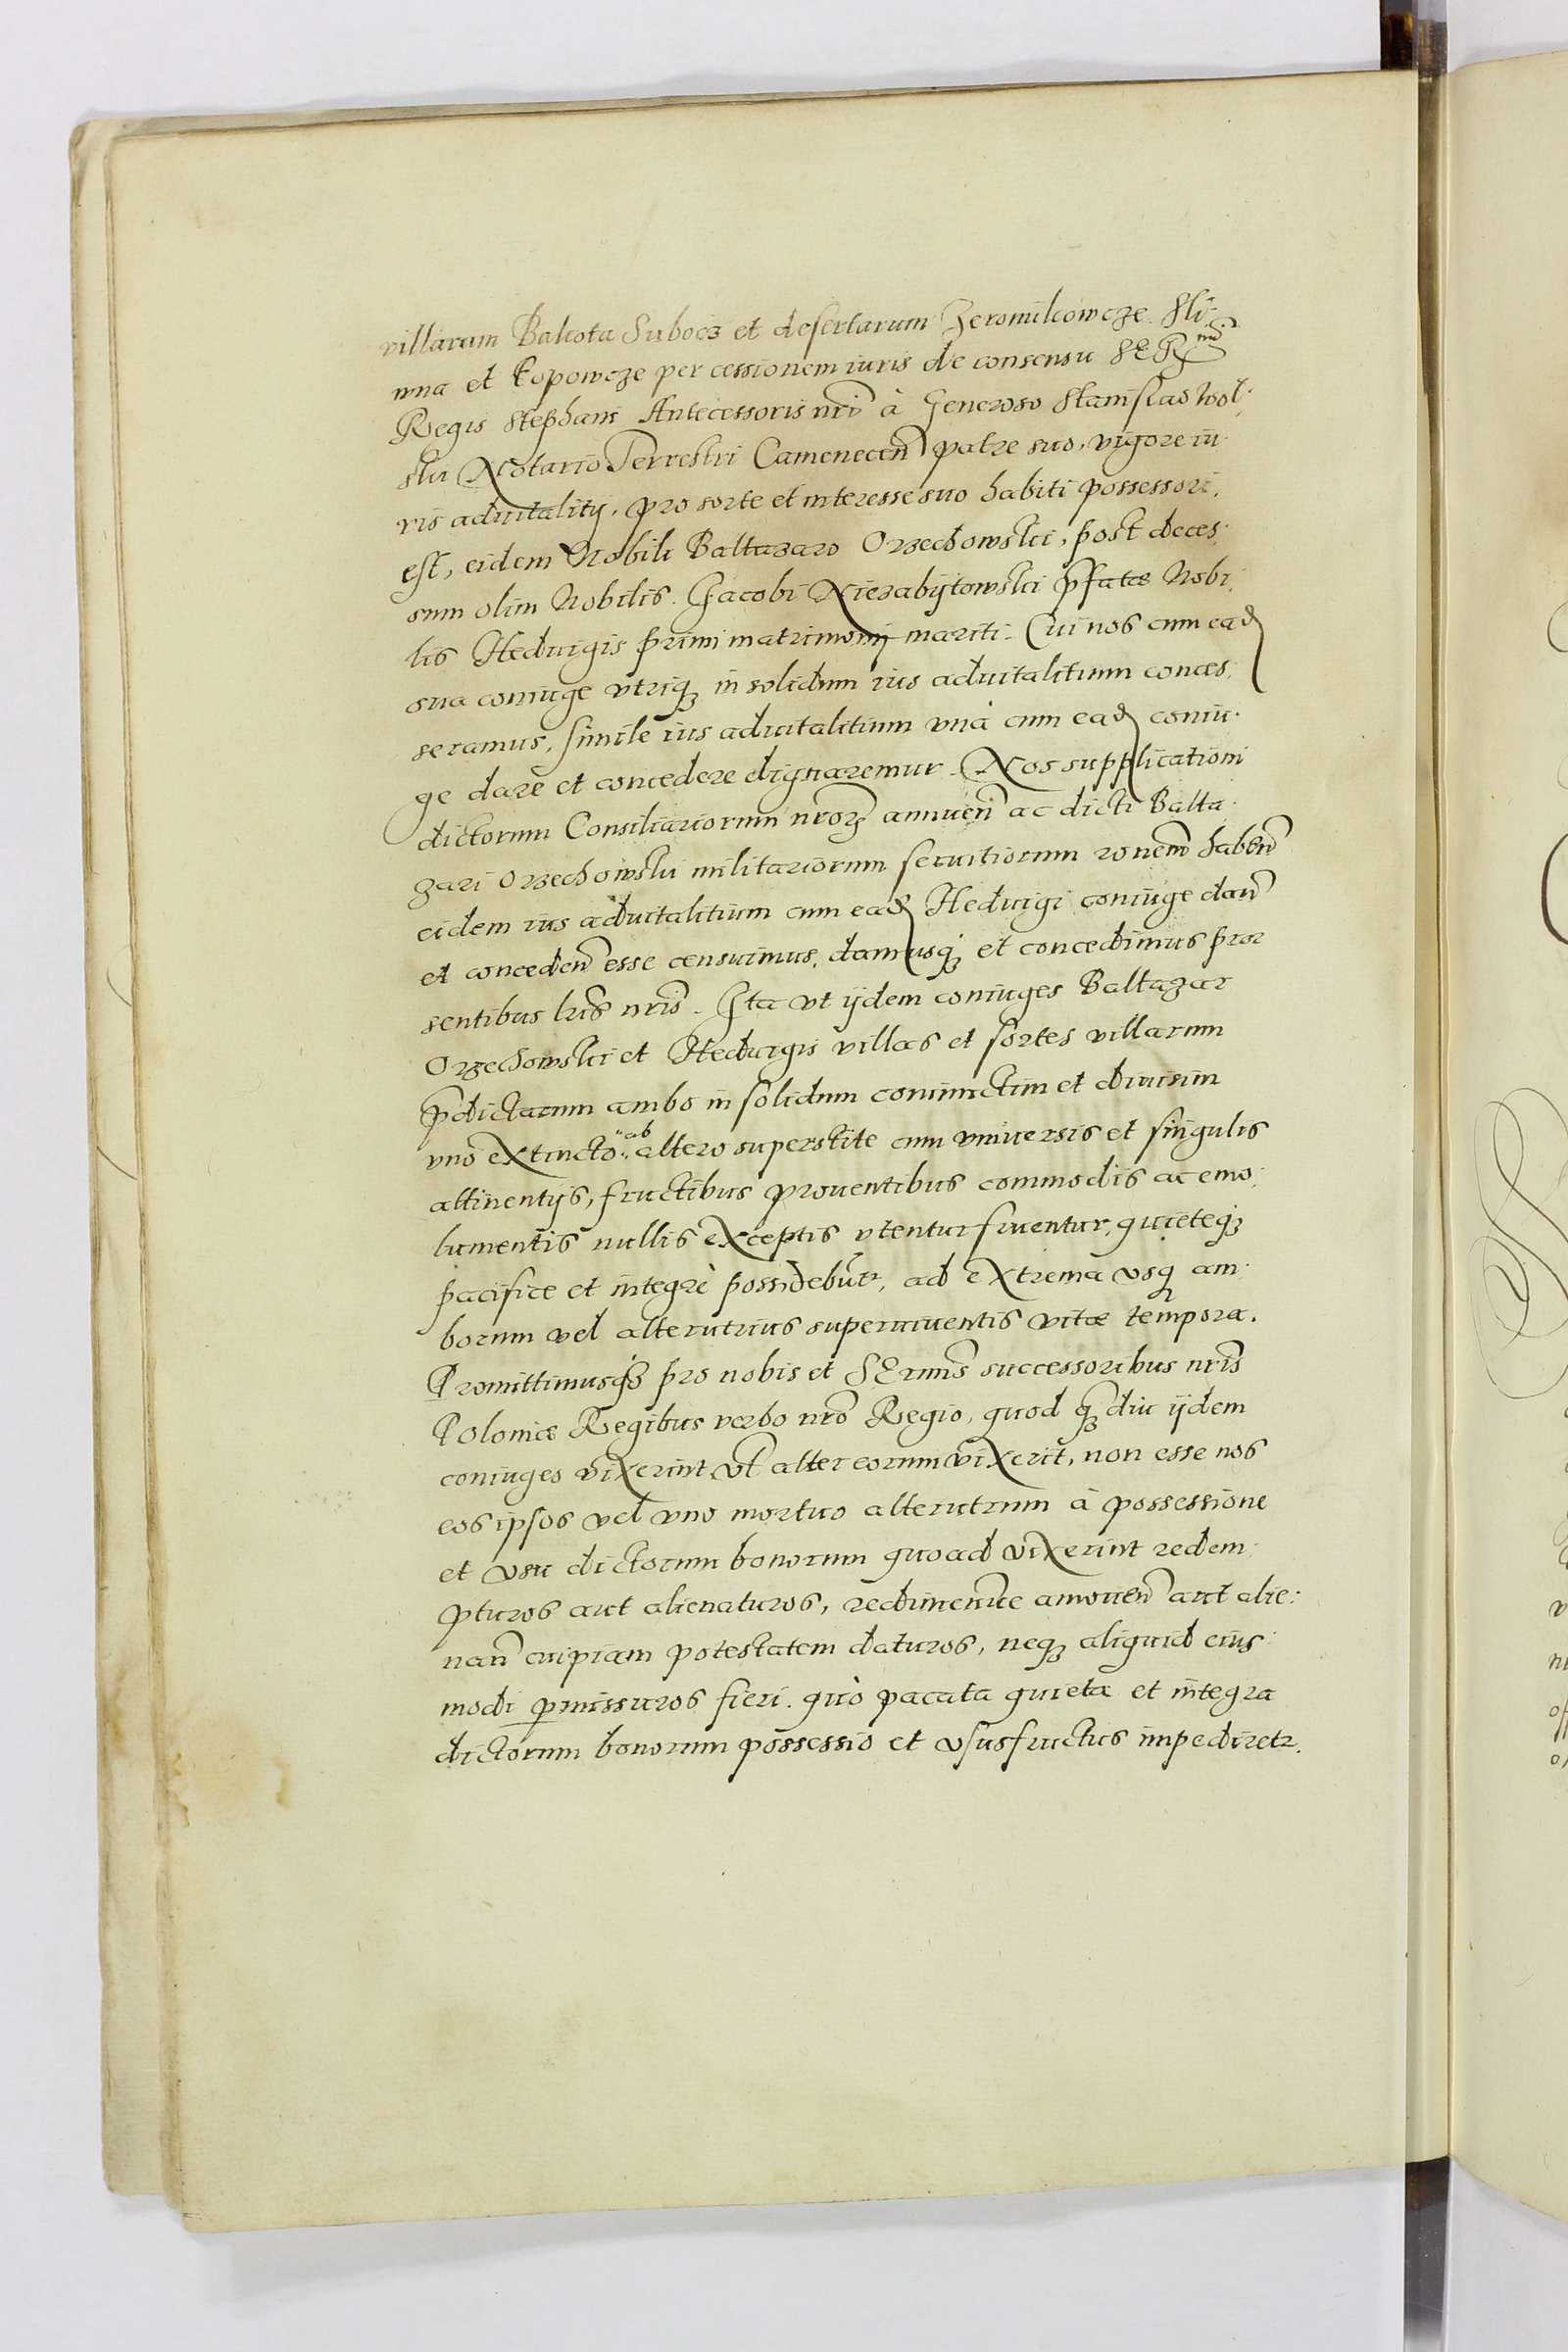 villarum Bakota Suboez et desertarum Zeromilcowcze Sli-
nna et Popowcze per cessionem iuris de consensu SER:mi
Regis Stephani Antecessoris nri à Generoso Stanislao Wol-
ski Notario Terrestri Camenecen patre suo, vigore iu-
ris aduitalitij, pro sorte et interesse suo habiti possessori,
est, eidem Nobili Baltazaro Orzechowski, post deces-
sum olim Nobilis Jacobi Niezabijtowski pfatae Nobi-
lis Heduigis primi matrimonij mariti. Cui nos cum ead
sua coniuge vtriq in solidum ius aduitalitium conces-
seramus, simile ius aduitalitium vnà cum ead coniu-
ge dare et concedere dignaremur. Nos supplicationi
dictorum Consiliariorum nroz annuen ac dicti Balta-
zari Orzechowski militariorum seruitiorum ronem haben
eidem ius aduitalitium cum ead Heduigi coniuge dan
et conceden esse censuimus, damusq et concedimus prae
sentibus lris nris. Ita vt ijdem coniuges Baltazar
Orzechowski et Heduigis villas et sortes villarum
pdictarum ambo in solidum coniunctim et diuisim
vno extincto ab altero superstite cum vniuersis et singulis
attinentijs, fructibus prouentibus commodis ac emo-
lumentis nullis exceptis vtentur fruentur, quieteq
pacifice et integrè possidebunt, ad extrema vsq am-
borum vel alterutrius superuiuentis vitae tempora.
Promittimusq pro nobis et SErmis successoribus nris
Poloniae Regibus verbo nro Regio, quod q diu ijdem
coniuges vixerint vl alter eorum vixerit, non esse nos
eos ipsos vel vno mortuo alterutrum à possessione
et vsu dictorum bonorum quoad vixerint redem-
pturos aut alienaturos, redimendive amouen aut alie-
nan cuipiam potestatem daturos, neq aliquid eius-
modi pmissuros fieri. quò pacata quieta et integra
dictorum bonorum possessio et vsusfructus impediretr.